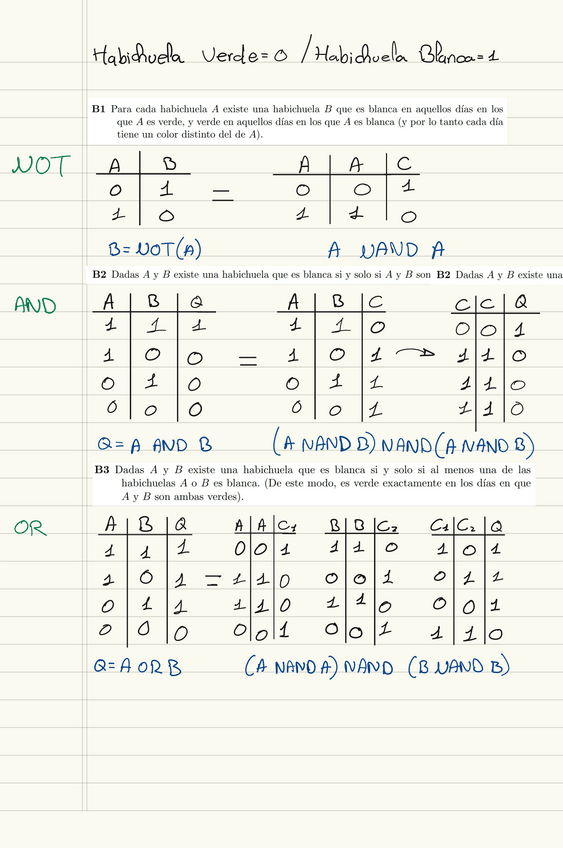 Habichuela Verde=0 / Habichuela Blanca=1
B1 Para cada habichuela A existe una habichuela B que es blanca en aquellos días en los
que A es verde, y verde en aquellos días en los que A es blanca (y por lo tanto cada día
tiene un color distinto del de A).
NOT
A B A A C
0 1 = 0 0 1
1 0 1 1 0
B=NOT(A) A NAND A
B2 Dadas A y B existe una habichuela que es blanca si y solo si A y B son B2 Dadas A y B existe una
AND
A B Q A B C C C Q
1 1 1 1 1 0 0 0 1
1 0 0 = 1 0 1 → 1 1 0
0 1 0 0 1 1 1 1 0
0 0 0 0 0 1 1 1 0
Q= A AND B (A NAND B) NAND (A NAND B)
B3 Dadas A y B existe una habichuela que es blanca si y solo si al menos una de las
habichuelas A o B es blanca. (De este modo, es verde exactamente en los días en que
A y B son ambas verdes).
OR
A B Q A A C1 B B C2 C1 C2 Q
1 1 1 0 0 1 1 1 0 1 0 1
1 0 1 = 1 1 0 0 0 1 0 1 1
0 1 1 1 1 0 1 1 0 0 0 1
0 0 0 0 0 1 0 0 1 1 1 0
Q= A OR B (A NAND A) NAND (B NAND B)